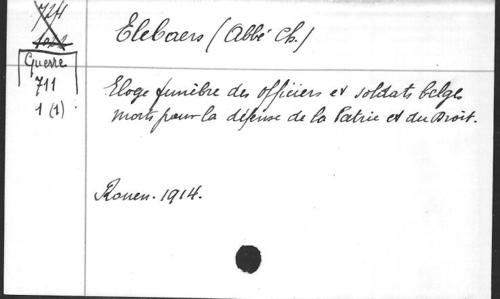 Guerre
711
1 (1)
Elebaers (Abbé Ch.)
Eloge funèbre des officiers et soldats belges
morts pour la défense de la Patrie et du Droit.
Rouen. 1914.